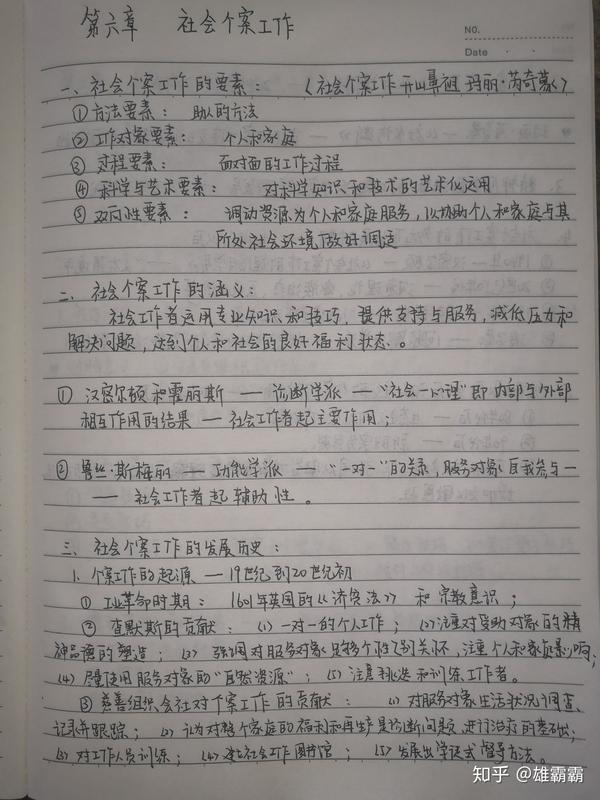 第六章 社会个案工作
NO.
Date
一、社会个案工作的要素： 〈社会个案工作开山鼻祖 玛丽·芮奇蒙〉
① 方法要素： 助人的方法
② 工作对象要素： 个人和家庭
③ 过程要素： 面对面的工作过程
④ 科学与艺术要素： 对科学知识和技术的艺术化运用
⑤ 双向性要素： 调动资源为个人和家庭服务，以协助个人和家庭与其
所处社会环境做好调适
二、社会个案工作的涵义：
社会工作者运用专业知识和技巧，提供支持与服务，减低压力和
解决问题，达到个人和社会的良好福利状态。
① 汉密尔顿和霍丽斯 — 诊断学派 — “社会—心理”即内部与外部
相互作用的结果 — 社会工作者起主要作用；
② 鲁丝·斯梅丽 — 功能学派 — “一对一”的关系，服务对象自我参与—
— 社会工作者起辅助性。
三、社会个案工作的发展历史：
1. 个案工作的起源 — 19世纪到20世纪初
① 工业革命时期： 1601年英国的《济贫法》 和 宗教意识；
② 查默斯的贡献： (1) 一对一的个人工作； (2) 注重对受助对象的精
神品德的塑造； (3) 强调对服务对象足够个性、个别关怀，注重个人和家庭影响；
(4) 尽量使用服务对象的“自然资源”； (5) 注意挑选和训练工作者。
③ 慈善组织会社对个案工作的贡献： (1) 对服务对象生活状况调查、
记录并跟踪； (2) 认为对整个家庭的福利和再生产是诊断问题、进行治疗的基础；
(3) 对工作人员训练； (4) 建社会工作图书馆； (5) 发展出学徒式督导方法。
知乎 @雄霸霸